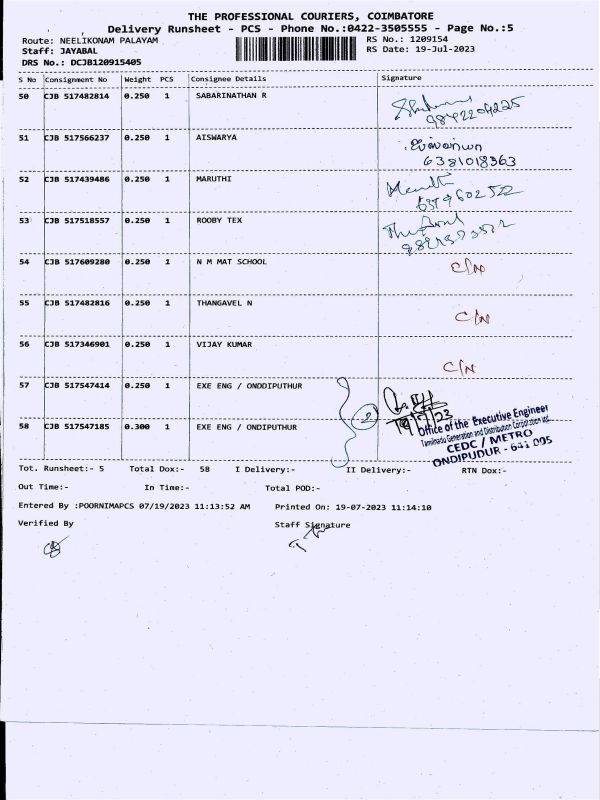 THE PROFESSIONAL COURIERS, COIMBATORE
Delivery Runsheet - PCS - Phone No.:0422-3505555 - Page No.:5
Route: NEELIKONAM PALAYAM RS No.: 1209154
Staff: JAYABAL RS Date: 19-Jul-2023
DRS No.: DCJB120915405
S No Consignment No Weight PCS Consignee Details Signature
50 CJB 517482814 0.250 1 SABARINATHAN R
51 CJB 517566237 0.250 1 AISWARYA
6381018363
52 CJB 517439486 0.250 1 MARUTHI
53 CJB 517518557 0.250 1 ROOBY TEX
54 CJB 517609280 0.250 1 N M MAT SCHOOL C/N
55 CJB 517482816 0.250 1 THANGAVEL N C/N
56 CJB 517346901 0.250 1 VIJAY KUMAR C/N
57 CJB 517547414 0.250 1 EXE ENG / ONDDIPUTHUR
58 CJB 517547185 0.300 1 EXE ENG / ONDIPUTHUR 2
Office of the Executive Engineer
Tamilnadu Generation and Distribution Corporation Ltd.
CEDC / METRO
ONDIPUDUR - 641 005
Tot. Runsheet:- 5 Total Dox:- 58 I Delivery:- II Delivery:- RTN Dox:-
Out Time:- In Time:- Total POD:-
Entered By :POORNIMAPCS 07/19/2023 11:13:52 AM Printed On: 19-07-2023 11:14:10
Verified By Staff Signature